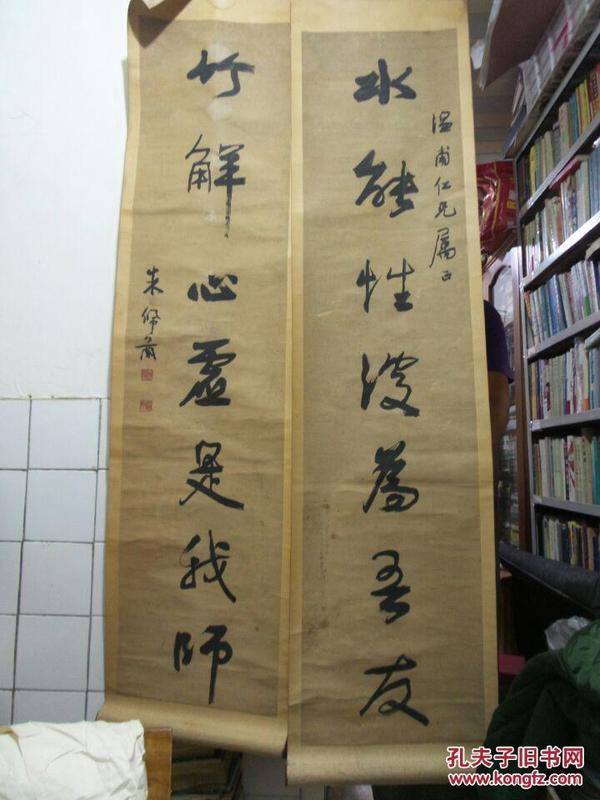 温甫仁兄属正
水能性淡為吾友
竹解心虛是我師
朱佩
孔夫子旧书网
www.kongfz.com